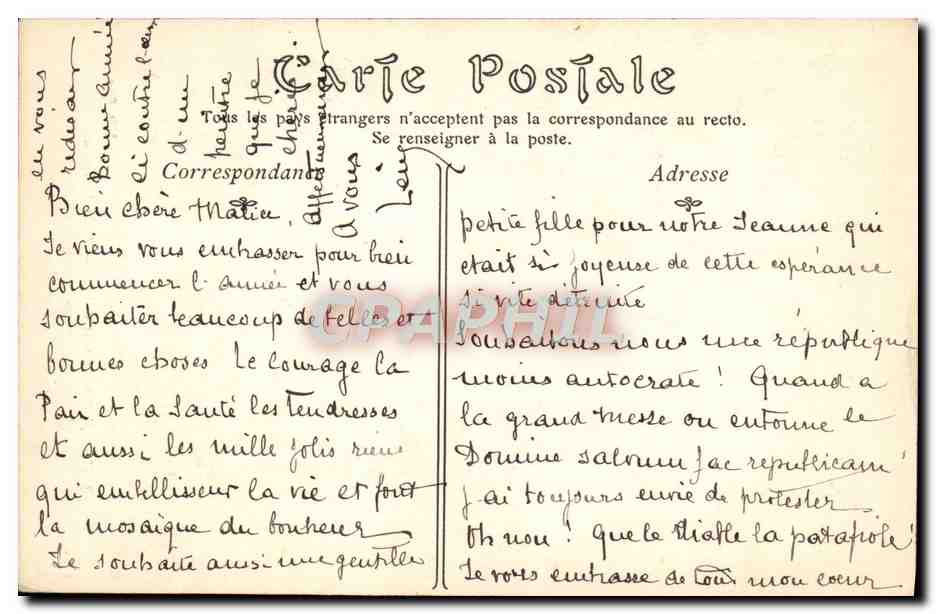 Carte Postale
Tous les pays étrangers n'acceptent pas la correspondance au recto.
Se renseigner à la poste.
Correspondance
Adresse
Bien chère
Je viens vous embrasser pour bien
commencer l'année et vous
souhaiter beaucoup de belles et
bonnes choses Le courage la
Paix et la Santé les Tendresses
et aussi les mille jolis riens
qui embellisseur la vie et font
la mosaïque du bonheur
Je souhaite aussi une gentille
petite fille pour notre Jeanne qui
etait si joyeuse de cette espérance
si vite détruite
Souhaitons nous une république
moins autocrate ! Quand a
la grand Messe on entonne le
Domine salvum fac republicam
j'ai toujours envie de protester
Oh non ! Que le Diable la patafiole !
Je vous embrasse de tout mon coeur
en vous
redisant
Bonne année
ci contre
d'un
peintre
que je
chere
affectueusement
A vous
CPAPHIL